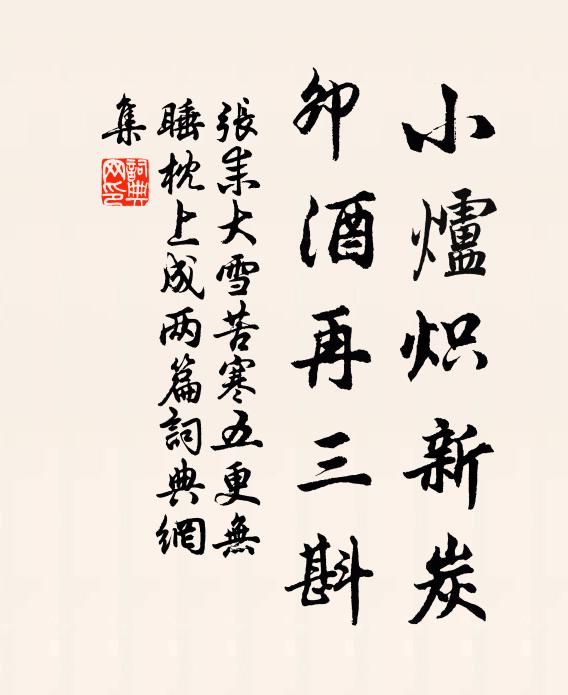 小爐炽新炭
卯酒再三斟
張耒大雪苦寒五更無
睡枕上成两篇詞典網
集
詞典網印